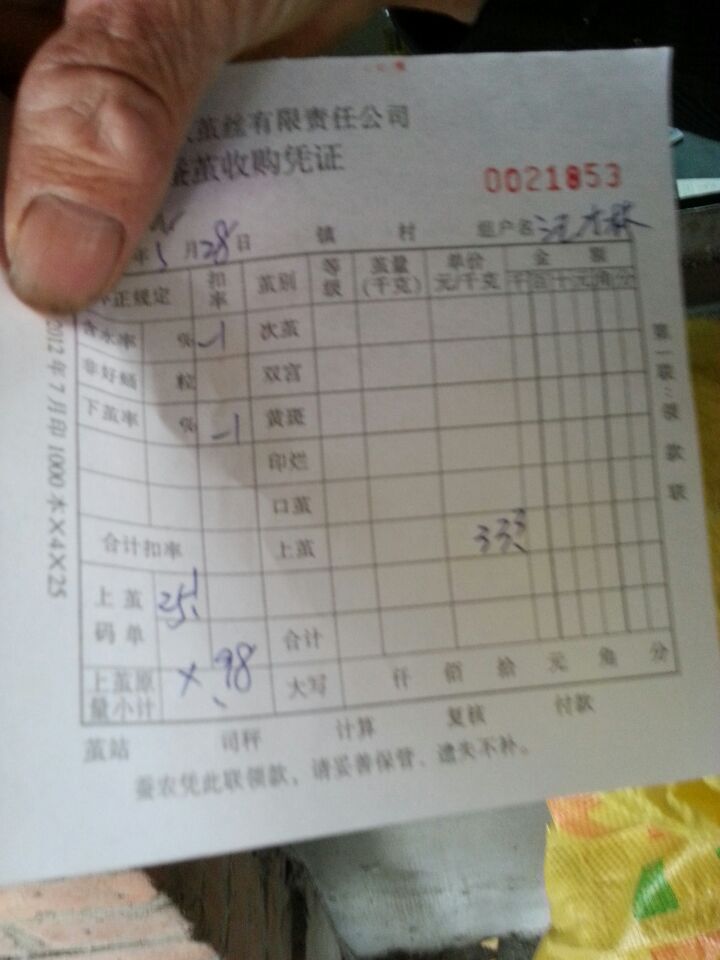 茧丝有限责任公司
蚕茧收购凭证
0021853
年5月28日 镇 村 组户名
正规定 扣率 茧别 等级 茧量(千克) 单价元/千克 金额
千百十元角分
含水率 % -1 次茧
非好蛹 粒 双宫
下茧率 % -1 黄斑
印烂
口茧
合计扣率 上茧 333
上茧码单 251
合计
上茧原量小计 ×.98 大写 仟 佰 拾 元 角 分
茧站 司秤 计算 复核 付款
蚕农凭此联领款，请妥善保管、遗失不补。
2012年7月印1000本×4×25
第一联：领款联